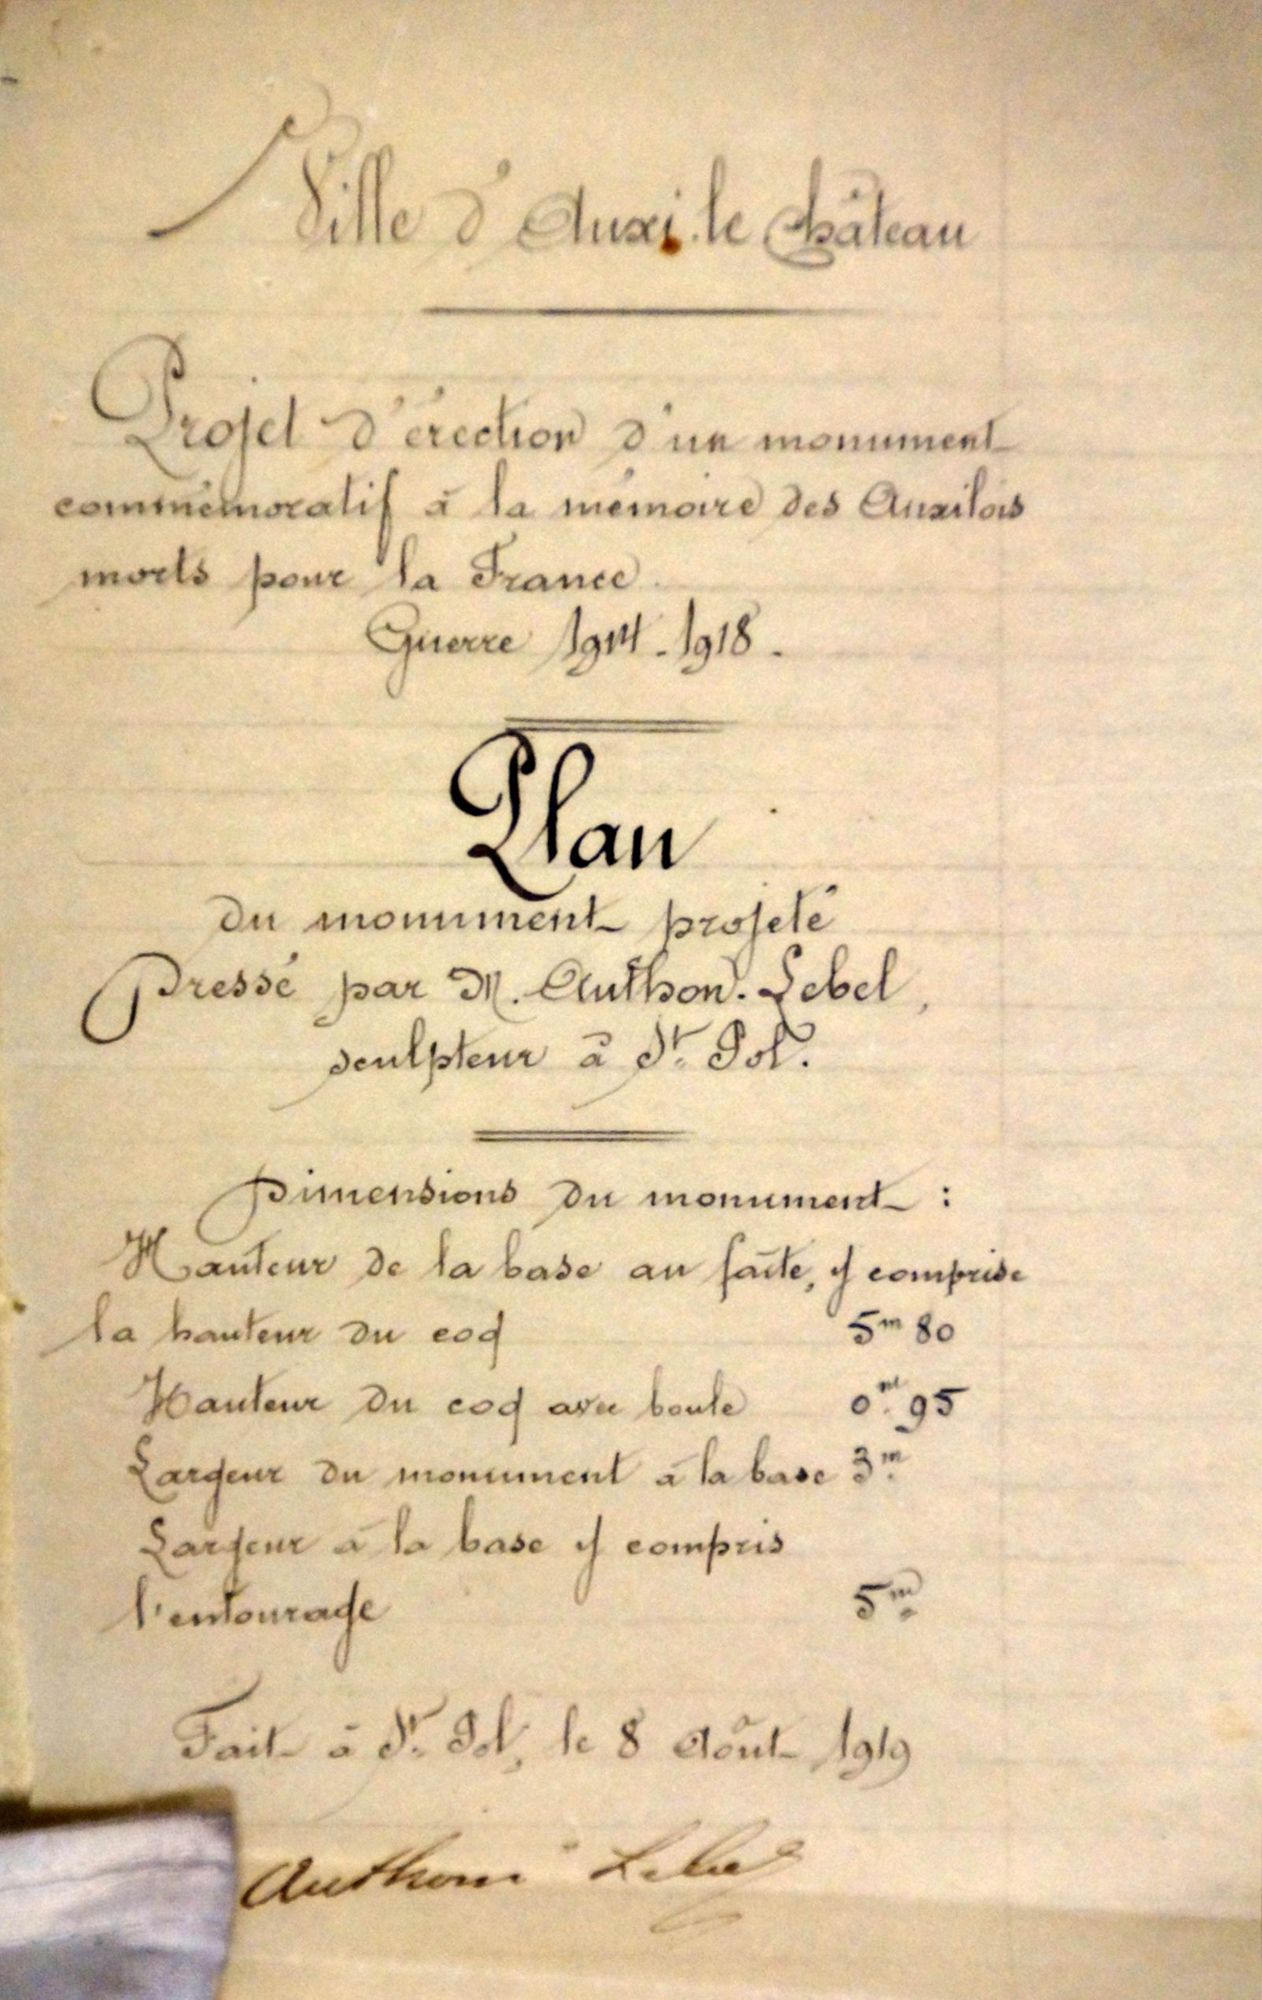 Ville d'Auxi.le Château
Projet d'érection d'un monument
commémoratif à la mémoire des Auxilois
morts pour la France.
Guerre 1914-1918.
Plan
du monument projeté
Dressé par M. Authom. Lebel,
sculpteur à St. Pol.
Dimensions du monument :
Hauteur de la base au faîte, y comprise
la hauteur du coq 5m 80
Hauteur du coq avec boule 0m. 95
Largeur du monument à la base 3m.
Largeur à la base y compris
l'entourage 5m.
Fait à St. Pol, le 8 Août 1919
Authom Lebel